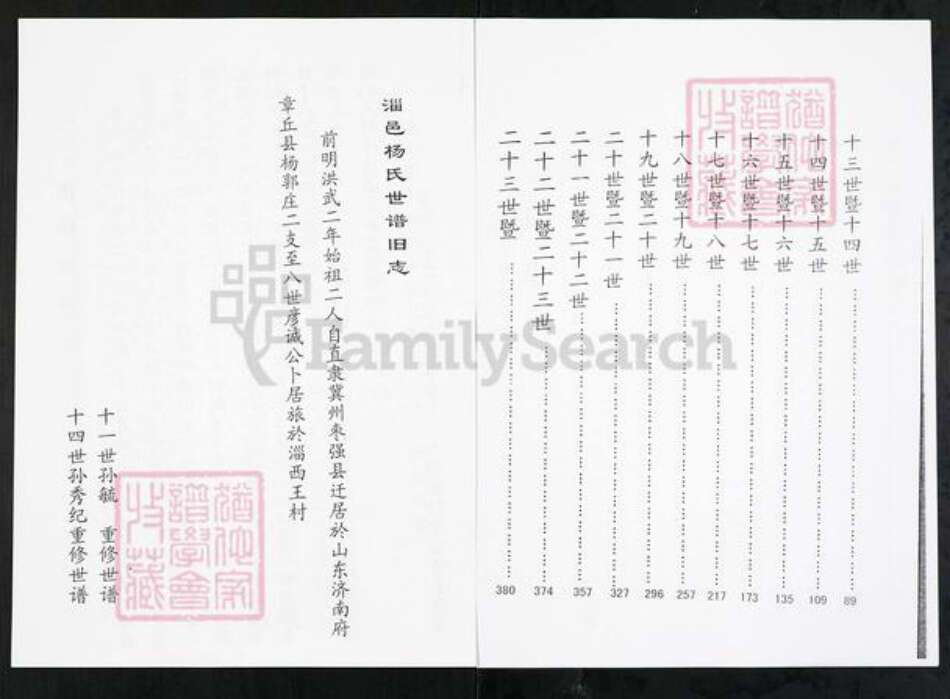 十三世暨十四世……89
十四世暨十五世……109
十五世暨十六世……135
十六世暨十七世……173
十七世暨十八世……217
十八世暨十九世……257
十九世暨二十世……296
二十世暨二十一世……327
二十一世暨二十二世……357
二十二世暨二十三世……374
二十三世暨……380
淄邑杨氏世谱旧志
前明洪武二年始祖二人自直隶冀州枣强县迁居於山东济南府
章丘县杨郭庄二支至八世彦诚公卜居旅於淄西王村
十一世孙毓 重修世谱
十四世孙秀纪重修世谱
FamilySearch